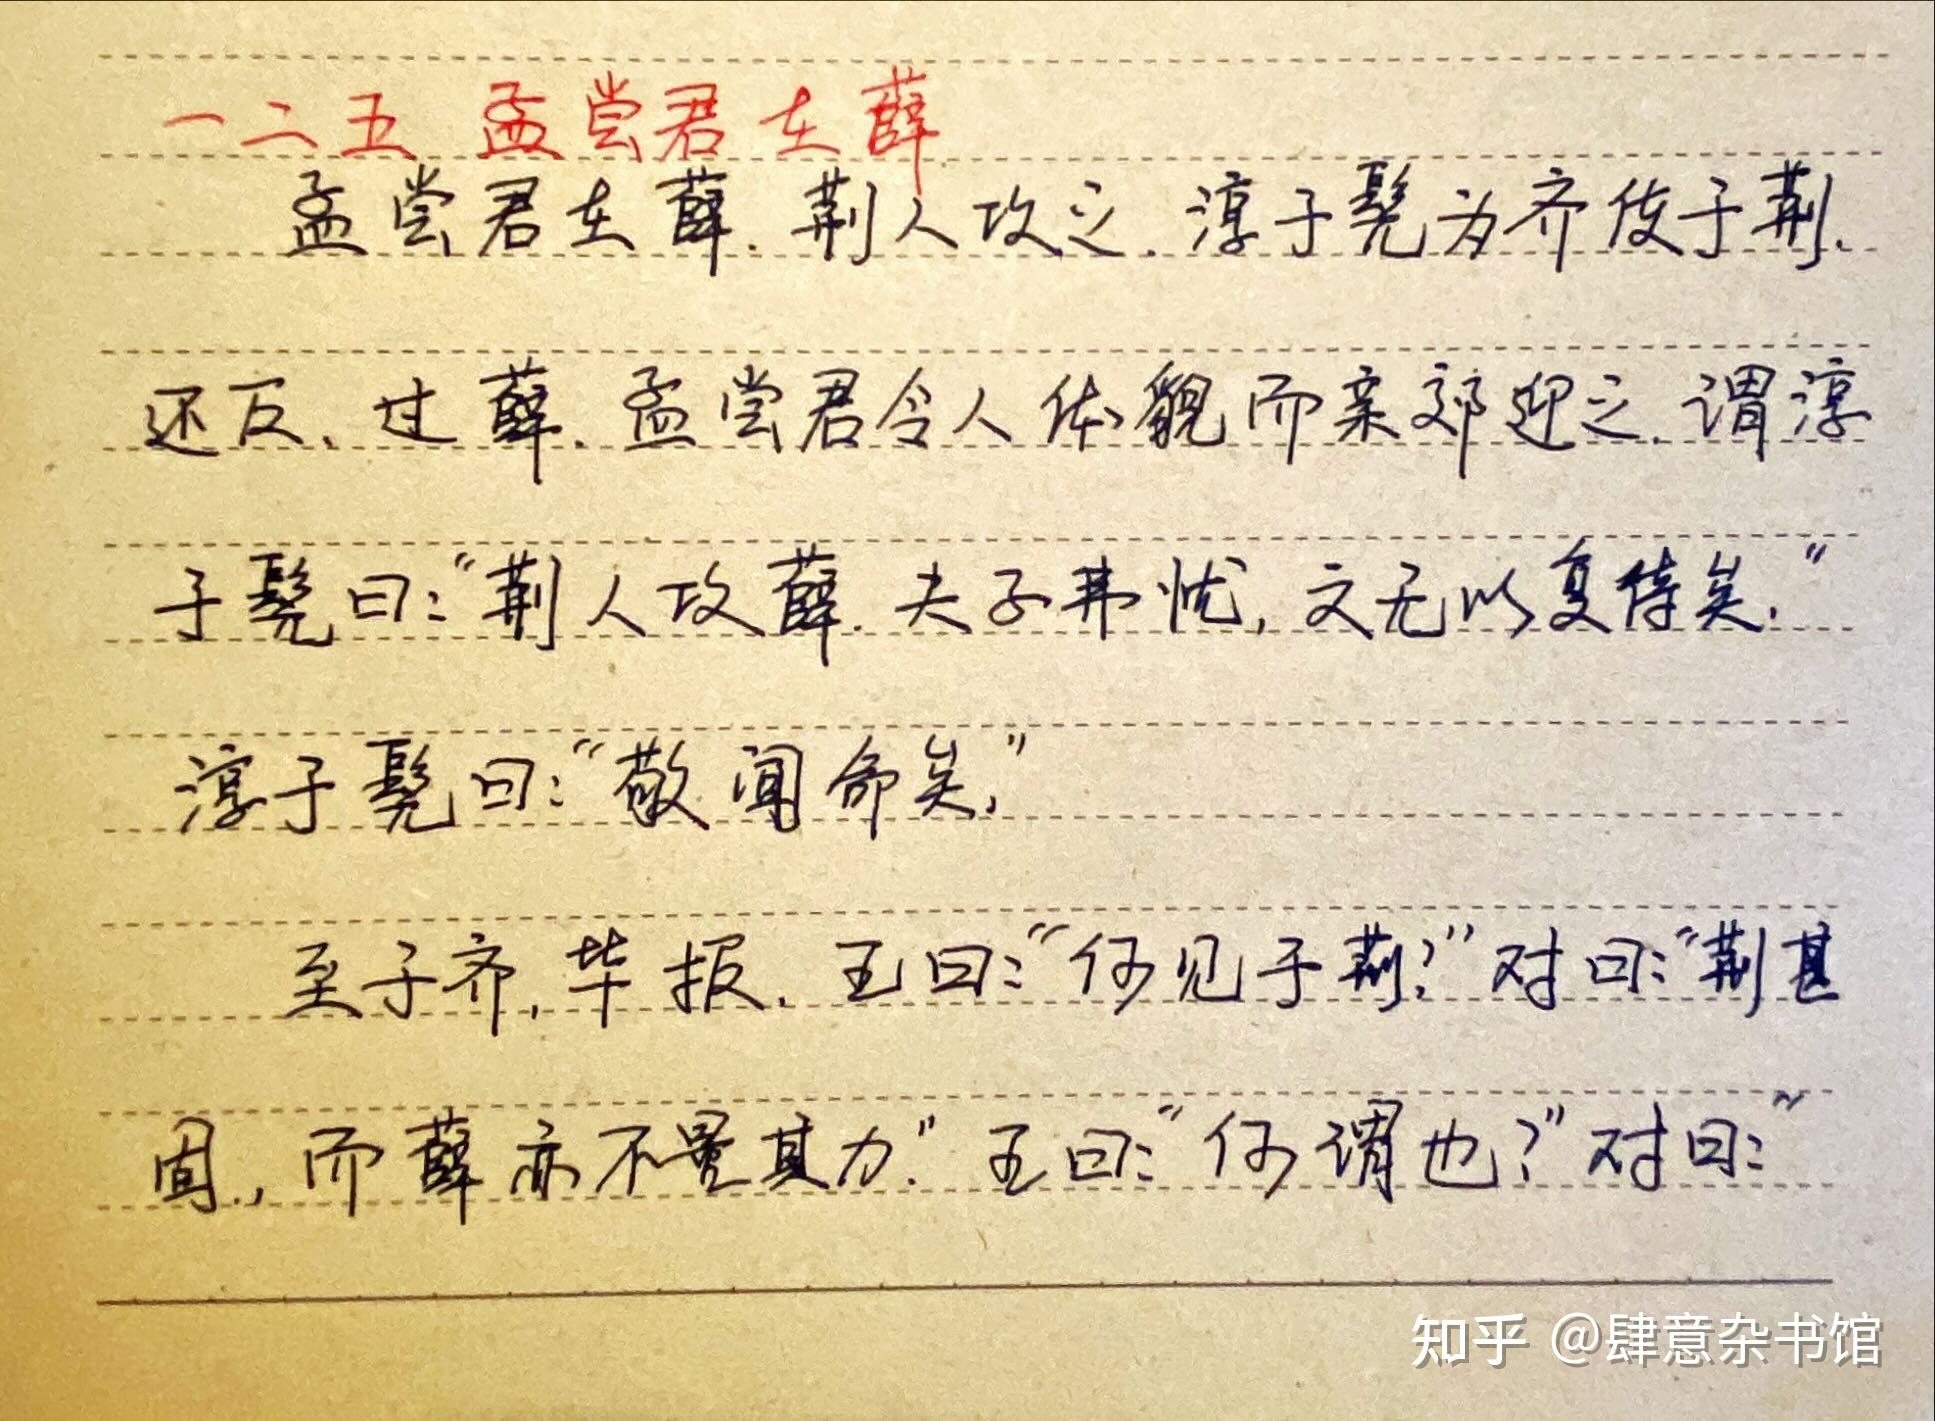 一二五 孟尝君在薛
孟尝君在薛.荆人攻之.淳于髡为齐使于荆.
还反、过薛.孟尝君令人体貌而亲郊迎之.谓淳
于髡曰:“荆人攻薛.夫子弗忧,文无以复侍矣.”
淳于髡曰:“敬闻命矣.”
至于齐,毕报.王曰:“何见于荆?”对曰:“荆甚
固.,而薛亦不量其力.”王曰:“何谓也?”对曰:“
知乎 @肆意杂书馆